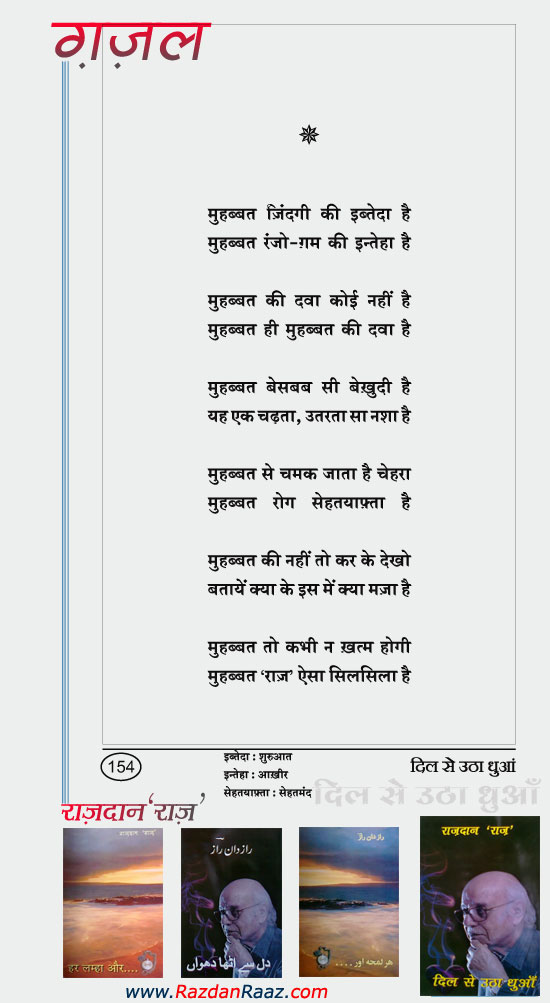 ग़ज़ल
मुहब्बत ज़िंदगी की इब्तेदा है
मुहब्बत रंजो-ग़म की इन्तेहा है
मुहब्बत की दवा कोई नहीं है
मुहब्बत ही मुहब्बत की दवा है
मुहब्बत बेसबब सी बेख़ुदी है
यह एक चढ़ता, उतरता सा नशा है
मुहब्बत से चमक जाता है चेहरा
मुहब्बत रोग सेहतयाफ़्ता है
मुहब्बत की नहीं तो कर के देखो
बतायें क्या के इस में क्या मज़ा है
मुहब्बत तो कभी न ख़त्म होगी
मुहब्बत ‘राज़’ ऐसा सिलसिला है
154
इब्तेदा : शुरुआत
इन्तेहा : आख़ीर
सेहतयाफ़्ता : सेहतमंद
दिल से उठा धुआं
दिल से उठा धुआँ
राज़दान ‘राज़’
राज़दान ‘राज़’
हर लम्हा और....
رازدان راز
دل سے اٹھا دھواں
رازدان راز
ہر لمحہ اور....
राज़दान ‘राज़’
दिल से उठा धुआँ
www.RazdanRaaz.com